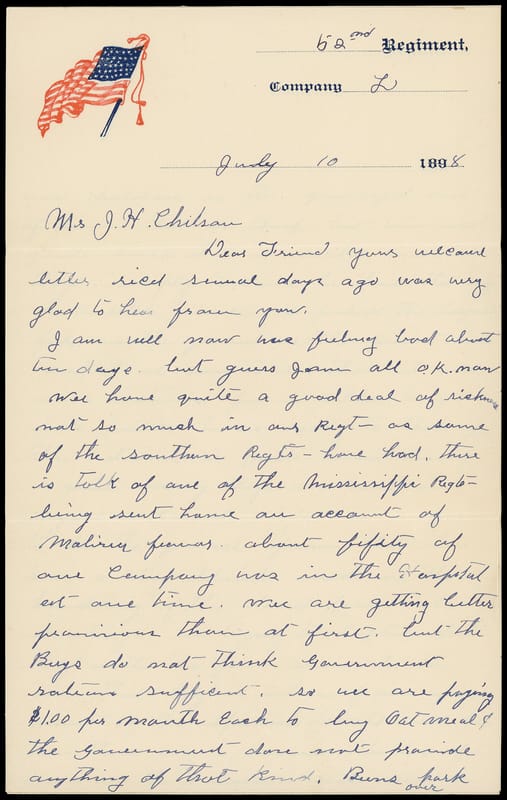 52nd Regiment,
Company L
July 10 1898
Mrs J. H. Chilson
Dear Friend yours welcome
letter recd several days ago was very
glad to hear from you.
I am well now was feeling bad about
ten days. but guess I am all O.K. now
wee have quite a good deal of sickness
not so much in our Regt- as some
of the southern Regts- have had. there
is talk of one of the Mississippi Regts-
being sent home on account of
Malirey fevor. about fifity of
one Company was in the Hospital
at one time. wee are getting better
provisions than at first. but the
Boys do not think Government
rations sufficent. so we are paying
$1.00 per month Each to buy Oat meal &
the Government dose not provide
anything of that kind. Beans pork
over